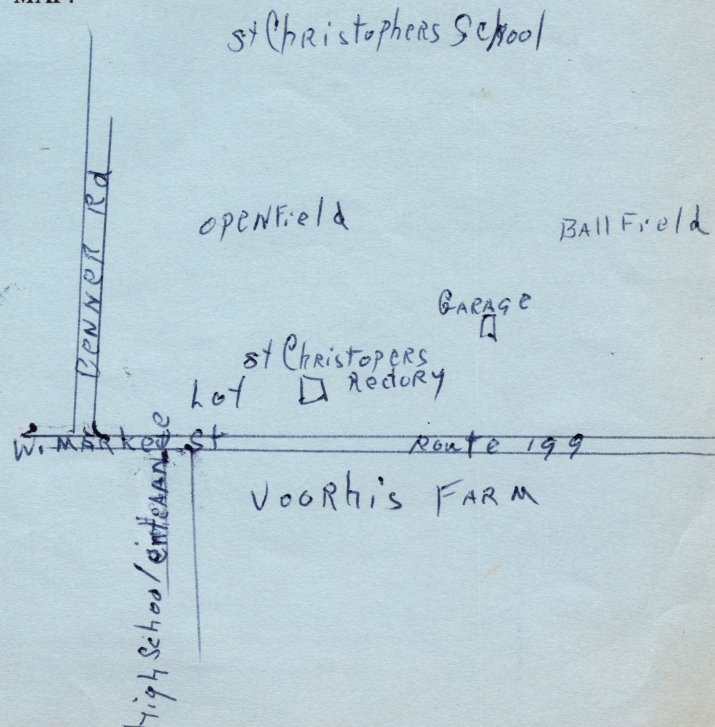 MAP:
St Christophers School
Benner Rd
Open Field
Ball Field
Garage
St Christopers
Rectory
Lot
W. Market St
Route 199
Voorhis Farm
High School entrance